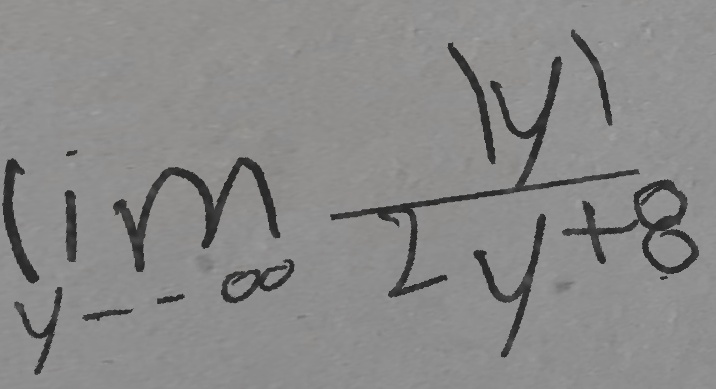 lim |y|
y--∞ 2y+8